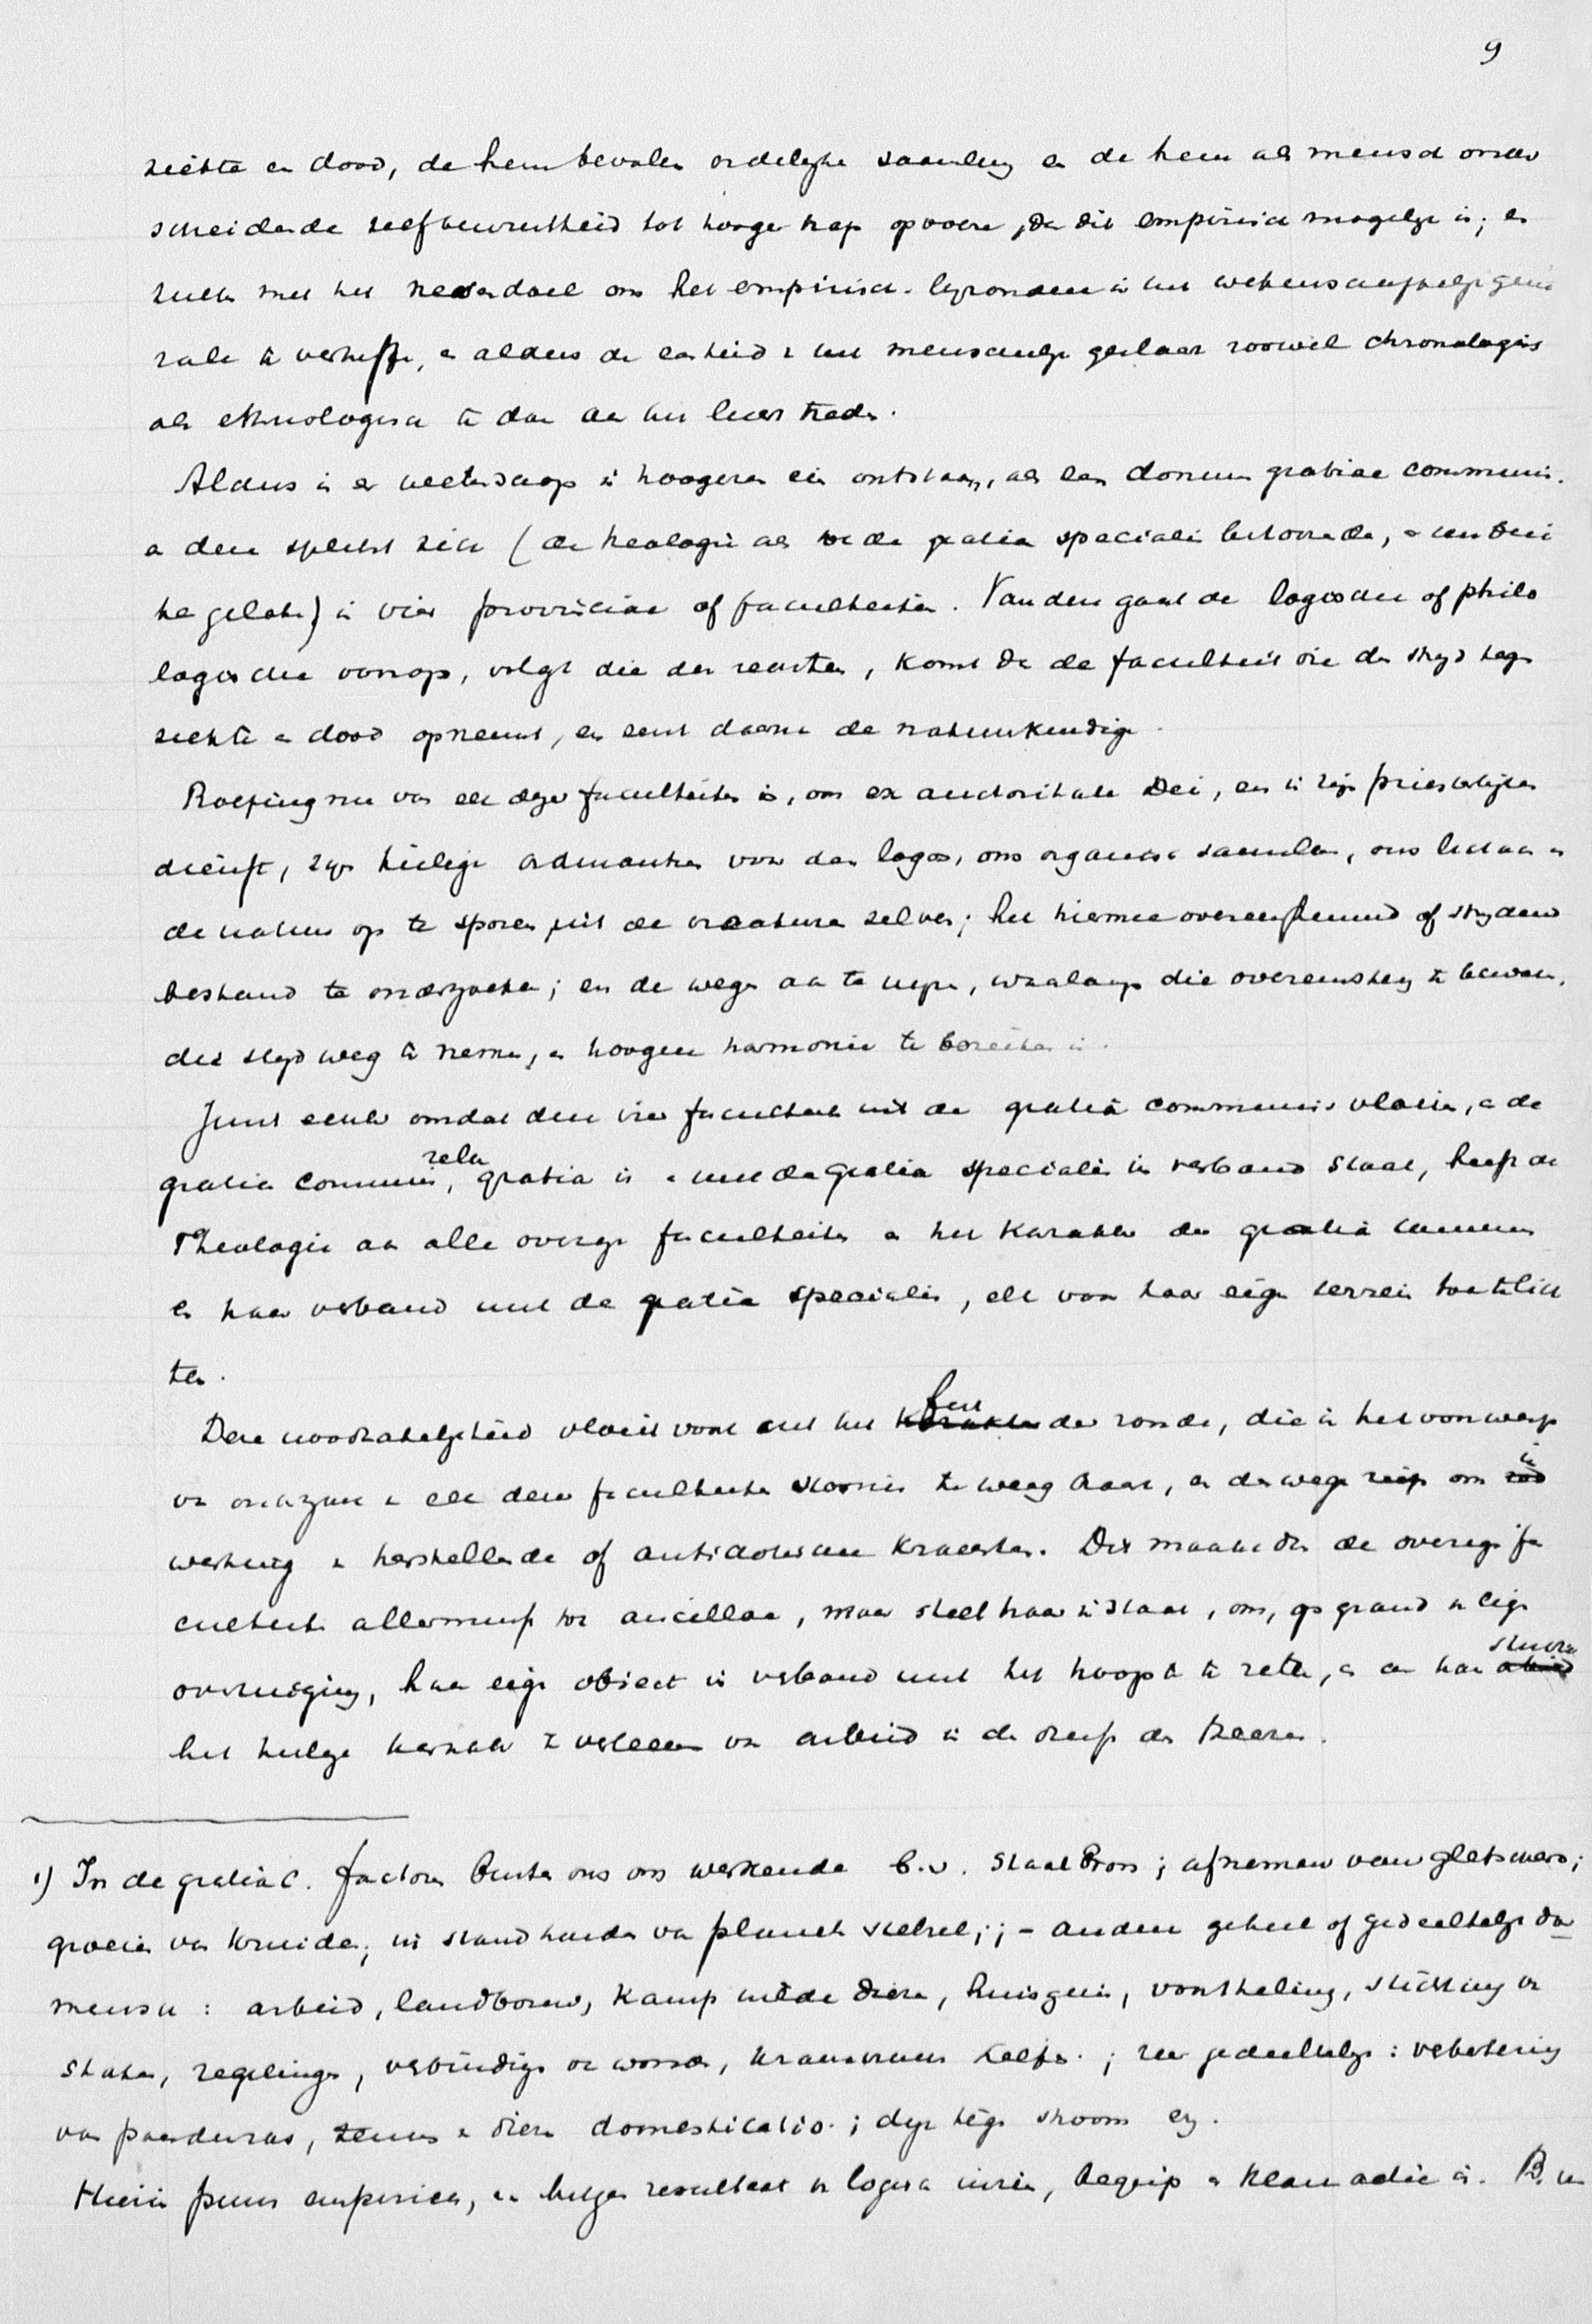 9
ziekte en dood, de hem bevolen ordelijke saamlev. en de hem als mensch onder
scheidende zelfbewustheid tot hooger trap opvoere, dan dit empirisch mogelijk is; en
zulks met het nevendoel om het empirisch in het wetenschappelijk gene
rale te verheffen, en aldus de eenheid v. het menschelijk geslacht zoowel chronologisch
als ethnologisch te doen aan het licht treden.
Aldus is er wetenschap in hoogeren zin ontstaan, als een donum gratiae communis.
en deze splitst zich (de theologie als tot de gratia specialis behoorende, er buiten
gelaten) in vier provinciae of faculteiten. Van deze gaat de logische of philo
logische voorop, volgt die der rechten, komt dan de faculteit die den strijd tegen
ziekte en dood opneemt, en eerst daarna de natuurkundige.
Roeping nu van elk dezer faculteiten is, om ex auctoritate Dei, en in zijn priesterlijken
dienst, zijn heilige ordinantien voor den logos, ons organisch saamleven, ons lichaam en
de natuur op te sporen uit de creaturen zelven; het hiermee overeenstemmend of strijdend
bestand te onderzoeken; en de wegen aan te wijzen, waarlangs die overeenstemming te bewaren,
die strijd weg te nemen, en hoogere harmonie te bereiken is.
Juist echter omdat deze vier faculteiten uit de gratia communis vloeien, en de
gratia communis, zelve gratia is en met de Gratia specialis in verband staat, heeft de
Theologie aan alle overige faculteiten en het karakter der gratia communis
en haar verband met de gratia specialis, elk voor haar eigen terrein toe te lich
ten.
Deze noodzakelijkheid vloeit voort uit het feit der zonde, die in het voorwerp
van onderzoek v. elk dezer faculteiten stoornis te weeg bracht, en de wegen om in
werking v. herstellende of antidotische krachten. Dit maakt dus de overige fa
culteiten allerminst tot ancillae, maar stelt haar in staat, om, op grond v. eigen
overtuiging, haar eigen object in verband met het hoogste te zetten, en aan haar studie
het heilige karakter te verleenen van arbeid in de dienst des Heeren.
1) In de gratia C. factoren buiten ons om werkende b.v. Staalbron; afnemen van gletschers;
groeien van kruiden; in stand houden van planeten stelsel;; – andere geheel of gedeeltelijk door
mensch: arbeid, landbouw, kamp wilde dieren, huisgezin, voortteling, stichting v.
staten, regelingen, verbindingen van woorden, ; zeer gedeeltelijk: verbetering
van paardenras, v. dieren domesticatio.; dijk tegen stroom enz.
Hierin puur empirisch, resultaat v. logisch inzien, begrip en is. B.v.